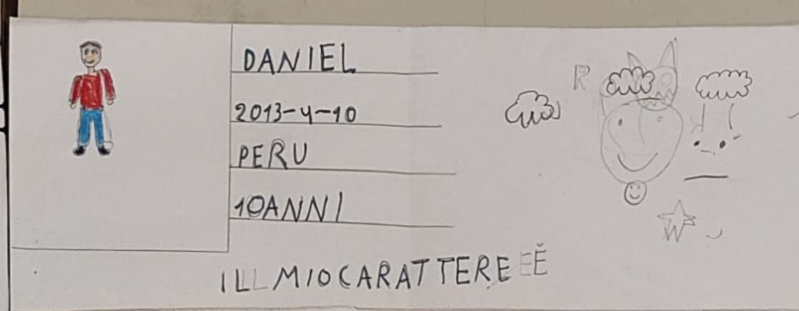 DANIEL
2013-4-10
PERU
10ANNI
R
ILL MIOCARATTERE EĔ